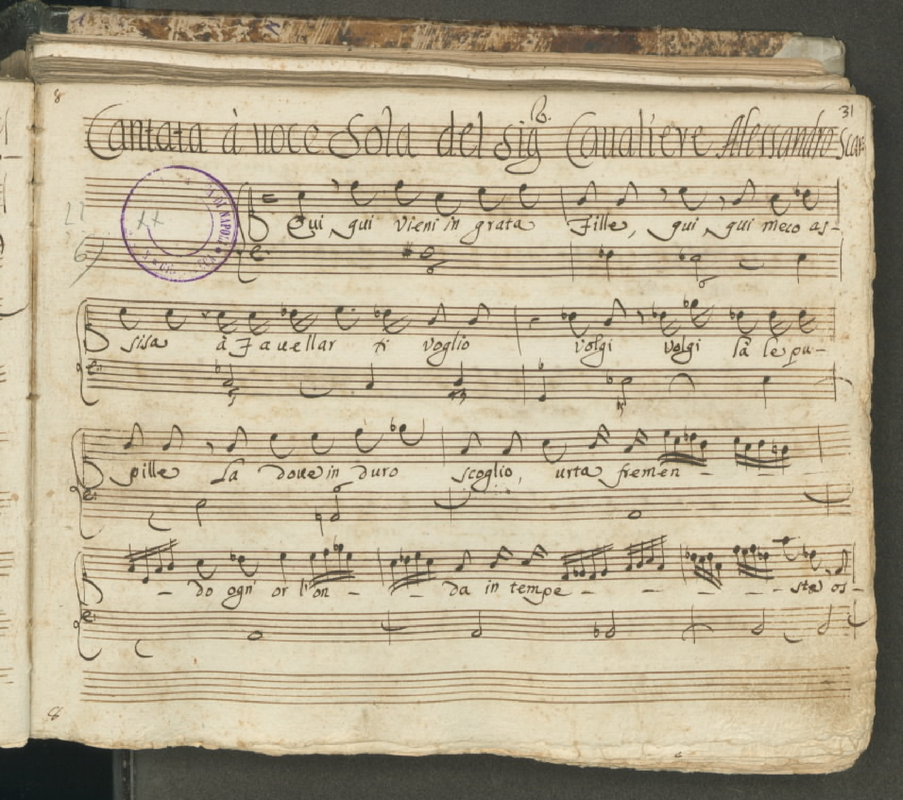 8
31
Cantata à uoce Sola del Sigr. Caualiere Alessandro Scar
Qui qui vieni in grata Fille, qui qui meco as-
sisa à Fauellar ti voglio volgi volgi là le pu-
pille Là doue in duro scoglio, urta fremen - -
- do ogn' or l'on - da in tempe - - - - - ste os-
8